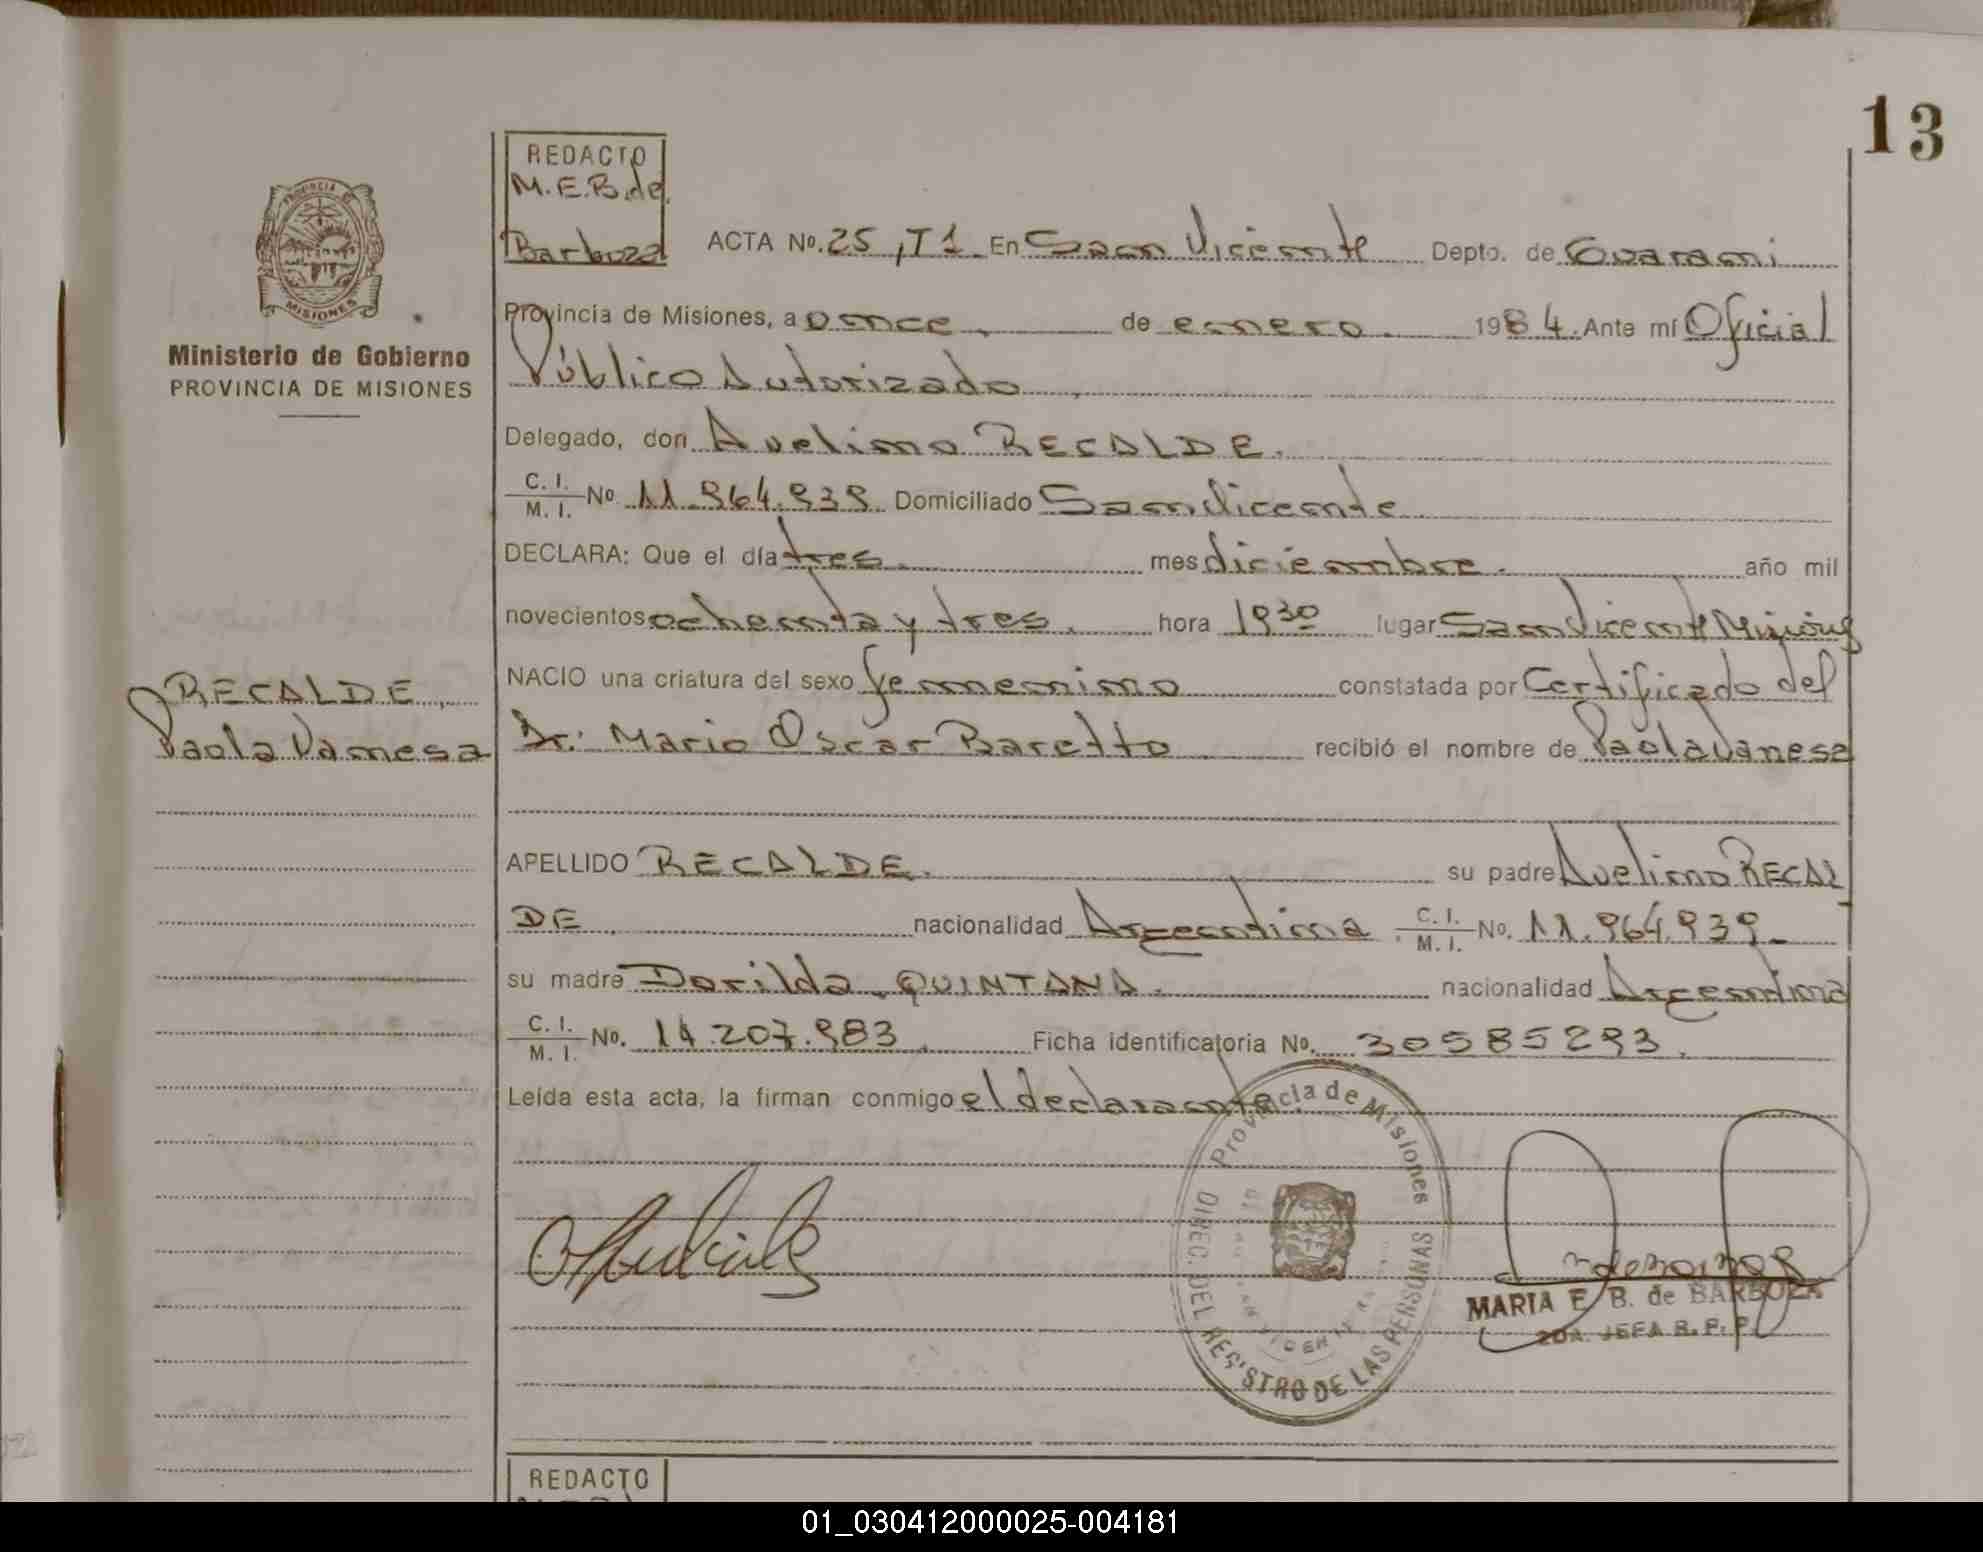 13
REDACTO
M.E.B. de
Barboza
PROVINCIA DE
MISIONES
Ministerio de Gobierno
PROVINCIA DE MISIONES
ACTA No. 25, T1 En San Vicente Depto. de Guarani
Provincia de Misiones, a once. de enero. 1984. Ante mí Oficial
Público Autorizado
Delegado, don Avelino RECALDE.
C. I. / M. I. No 11.964.939 Domiciliado San Vicente
DECLARA: Que el día tres. mes diciembre. año mil
novecientos ochenta y tres. hora 19 30 lugar San Vicente Misiones
NACIO una criatura del sexo femenino constatada por Certificado del
Dr. Mario Oscar Baretto recibió el nombre de Paola Vanesa
RECALDE
Paola Vanesa
APELLIDO RECALDE. su padre Avelino RECAL
DE nacionalidad Argentina C. I. / M. I. No. 11.964.939
su madre Dorilda QUINTANA. nacionalidad Argentina
C. I. / M. I. No. 14.207.983 Ficha identificatoria No. 30585293.
Leída esta acta, la firman conmigo el declarante.
Provincia de Misiones
DIREC. DEL REGISTRO DE LAS PERSONAS
MARIA E. B. de BARBOZA
2DA. JEFA R. P. P.
REDACTO
01_030412000025-004181